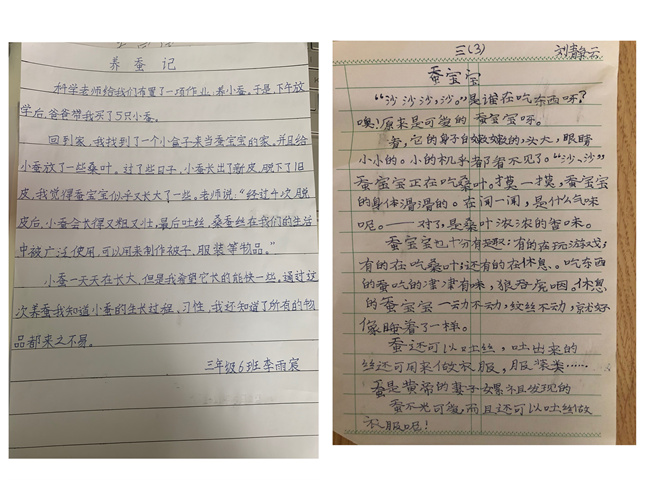 养蚕记
科学老师给我们布置了一项作业:养小蚕。于是,下午放
学后,爸爸带我买了5只小蚕。
回到家,我找到了一个小盒子来当蚕宝宝的家,并且给
小蚕放了一些桑叶。过了些日子,小蚕长出了新皮,脱下了旧
皮,我觉得蚕宝宝似乎又长大了一些。老师说:“经过4次脱
皮后,小蚕会长得又粗又壮,最后吐丝,桑蚕丝在我们的生活
中被广泛使用,可以用来制作被子、服装等物品。”
小蚕一天天在长大,但是我希望它长的能快一些。通过这
次养蚕我知道小蚕的生长过程、习性,我还知道了所有的物
品都来之不易。
三年级6班李雨宸
三(3) 刘静云
蚕宝宝
“沙沙沙,沙。”是谁在吃东西呀?
噢!原来是可爱的蚕宝宝呀。
看,它的身子白嫩嫩的,头大,眼睛
小小的。小的几乎都看不见了。“沙、沙”
蚕宝宝正在吃桑叶。摸一摸,蚕宝宝
的身体滑滑的。在闻一闻,是什么气味
呢。——对了,是桑叶浓浓的香味。
蚕宝宝也十分有趣:有的在玩游戏;
有的在吃桑叶;还有的在休息。吃东西
的蚕吃的津津有味,狼吞虎咽。休息
的蚕宝宝一动不动,纹丝不动,就好
像睡着了一样。
蚕还可以吐丝,吐出来的
丝还可用来做衣服,服装类……
蚕是黄帝的妻子嫘祖发现的
蚕不光可爱,而且还可以吐丝做
衣服呢!